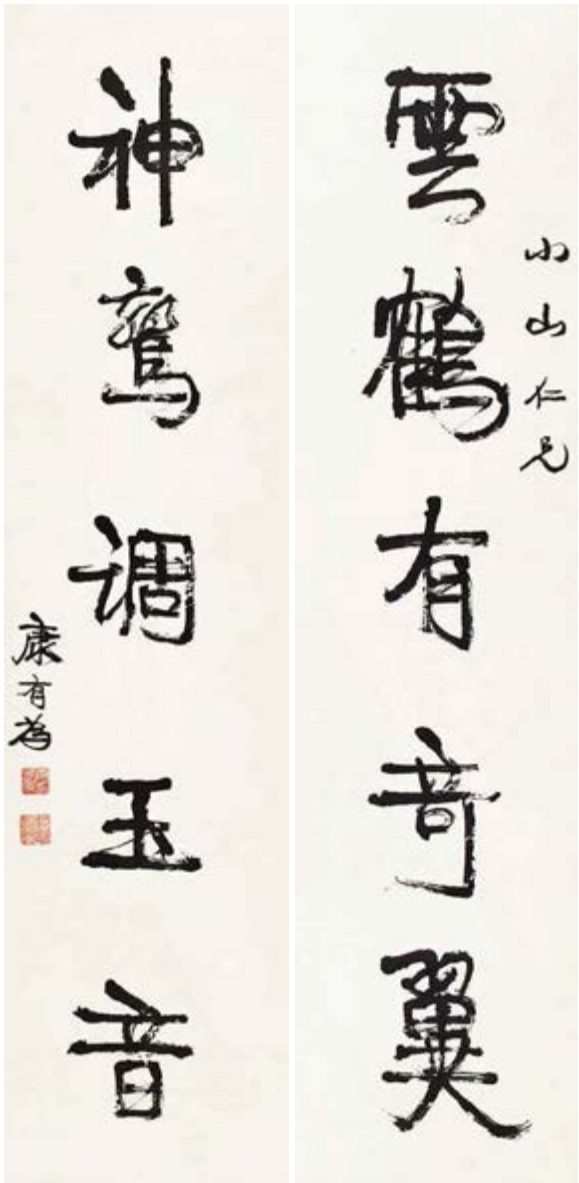 雲鶴有奇翼
小山仁兄
神鸾调玉音
康有為